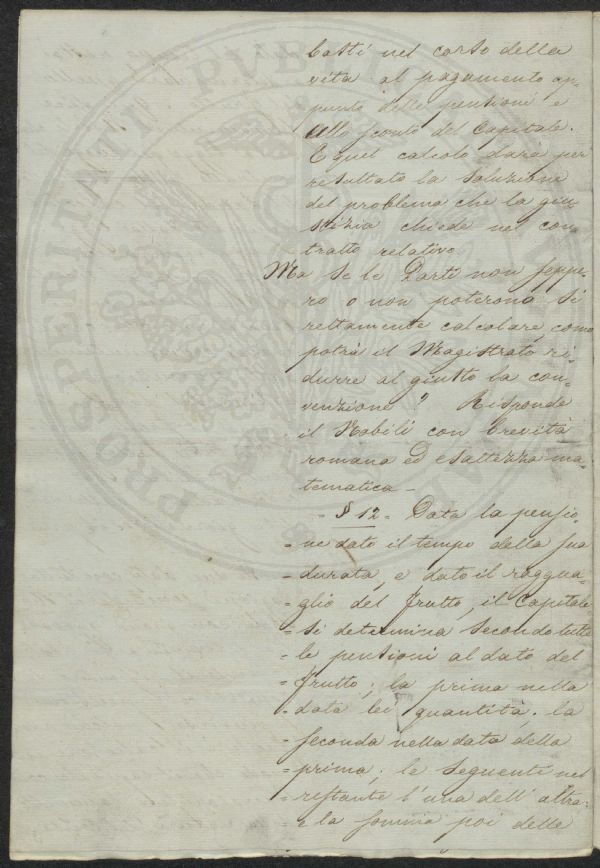 basti nel corso della
vita al pagamento ap-
punto delle pensioni e
allo sconto del Capitale.
E quel calcolo darà per
resultato la soluzione
del problema che la giu-
stizia chiede nel con-
tratto relativo.
Ma se le Parti non seppe-
ro o non poterono sì
rettamente calcolare, come
potrà il Magistrato ri-
durre al giusto la con-
venzione? Risponde
il Nobili con brevità
romana ed esattezza ma-
tematica -
= § 12 = Data la pensio-
= ne dato il tempo della sua
= durata, e dato il raggua-
= glio del frutto, il Capitale
= si determina secondo tutte
= le pensioni al dato del
= frutto; la prima nella
= data lei quantità. la
= seconda nella data della
= prima. le seguenti nel
= restante l'una dell'altra:
= e la somma poi delle
PROSPERITATI PVBLICAE